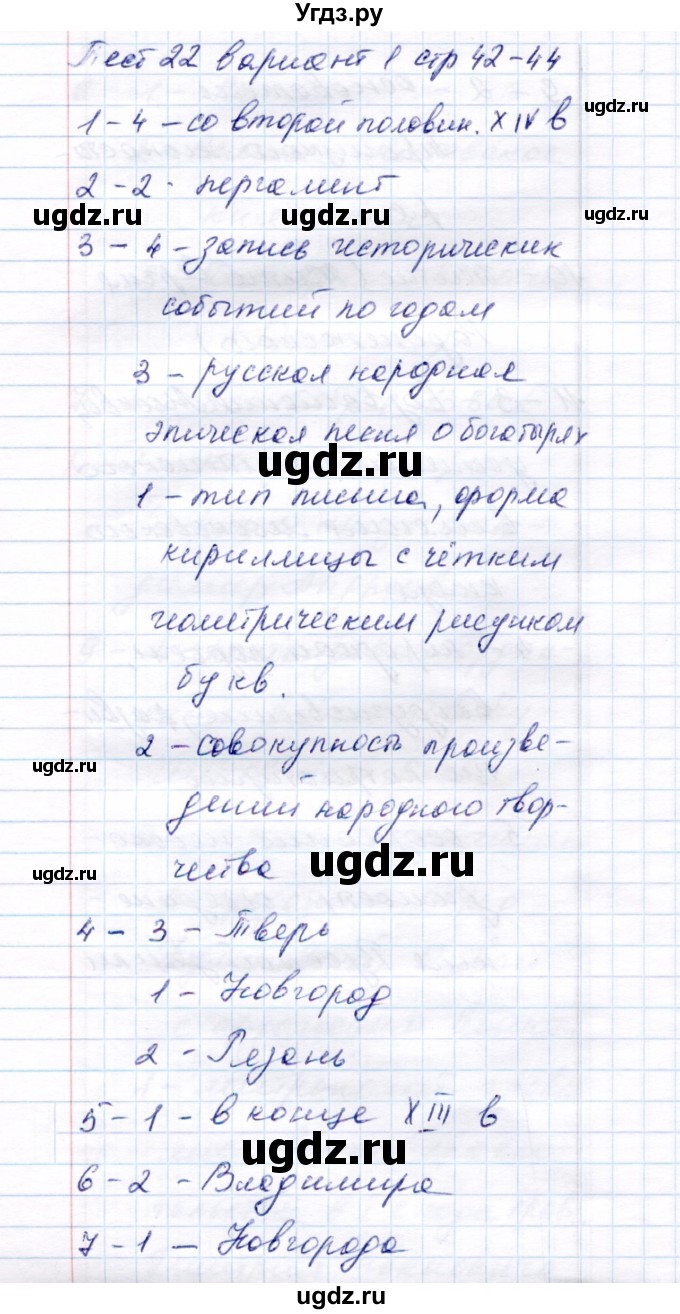 Угдз.ру
Тест 22 вариант 1 стр 42-44
1-4 - со второй половин. XIV в
2-2 - пергамент
ugdz.ru ugdz.ru ugdz.ru
3 - 4 - запись исторических
событий по годам
3 - русская народная
ugdz.ru ugdz.ru
эпическая песня о богатырях
ugdz.ru
1 - тип письма, форма
кириллицы с чётким
геометрическим рисунком
ugdz.ru ugdz.ru ugdz.ru
букв.
2 - совокупность произве-
ugdz.ru ugdz.ru
дений народного твор-
чества
ugdz.ru ugdz.ru ugdz.ru
4 - 3 - Тверь
1 - Новгород
ugdz.ru ugdz.ru
2 - Резань
5 - 1 - в конце XIII в
ugdz.ru ugdz.ru ugdz.ru
6 - 2 - Владимира
7 - 1 - Новгорода
ugdz.ru